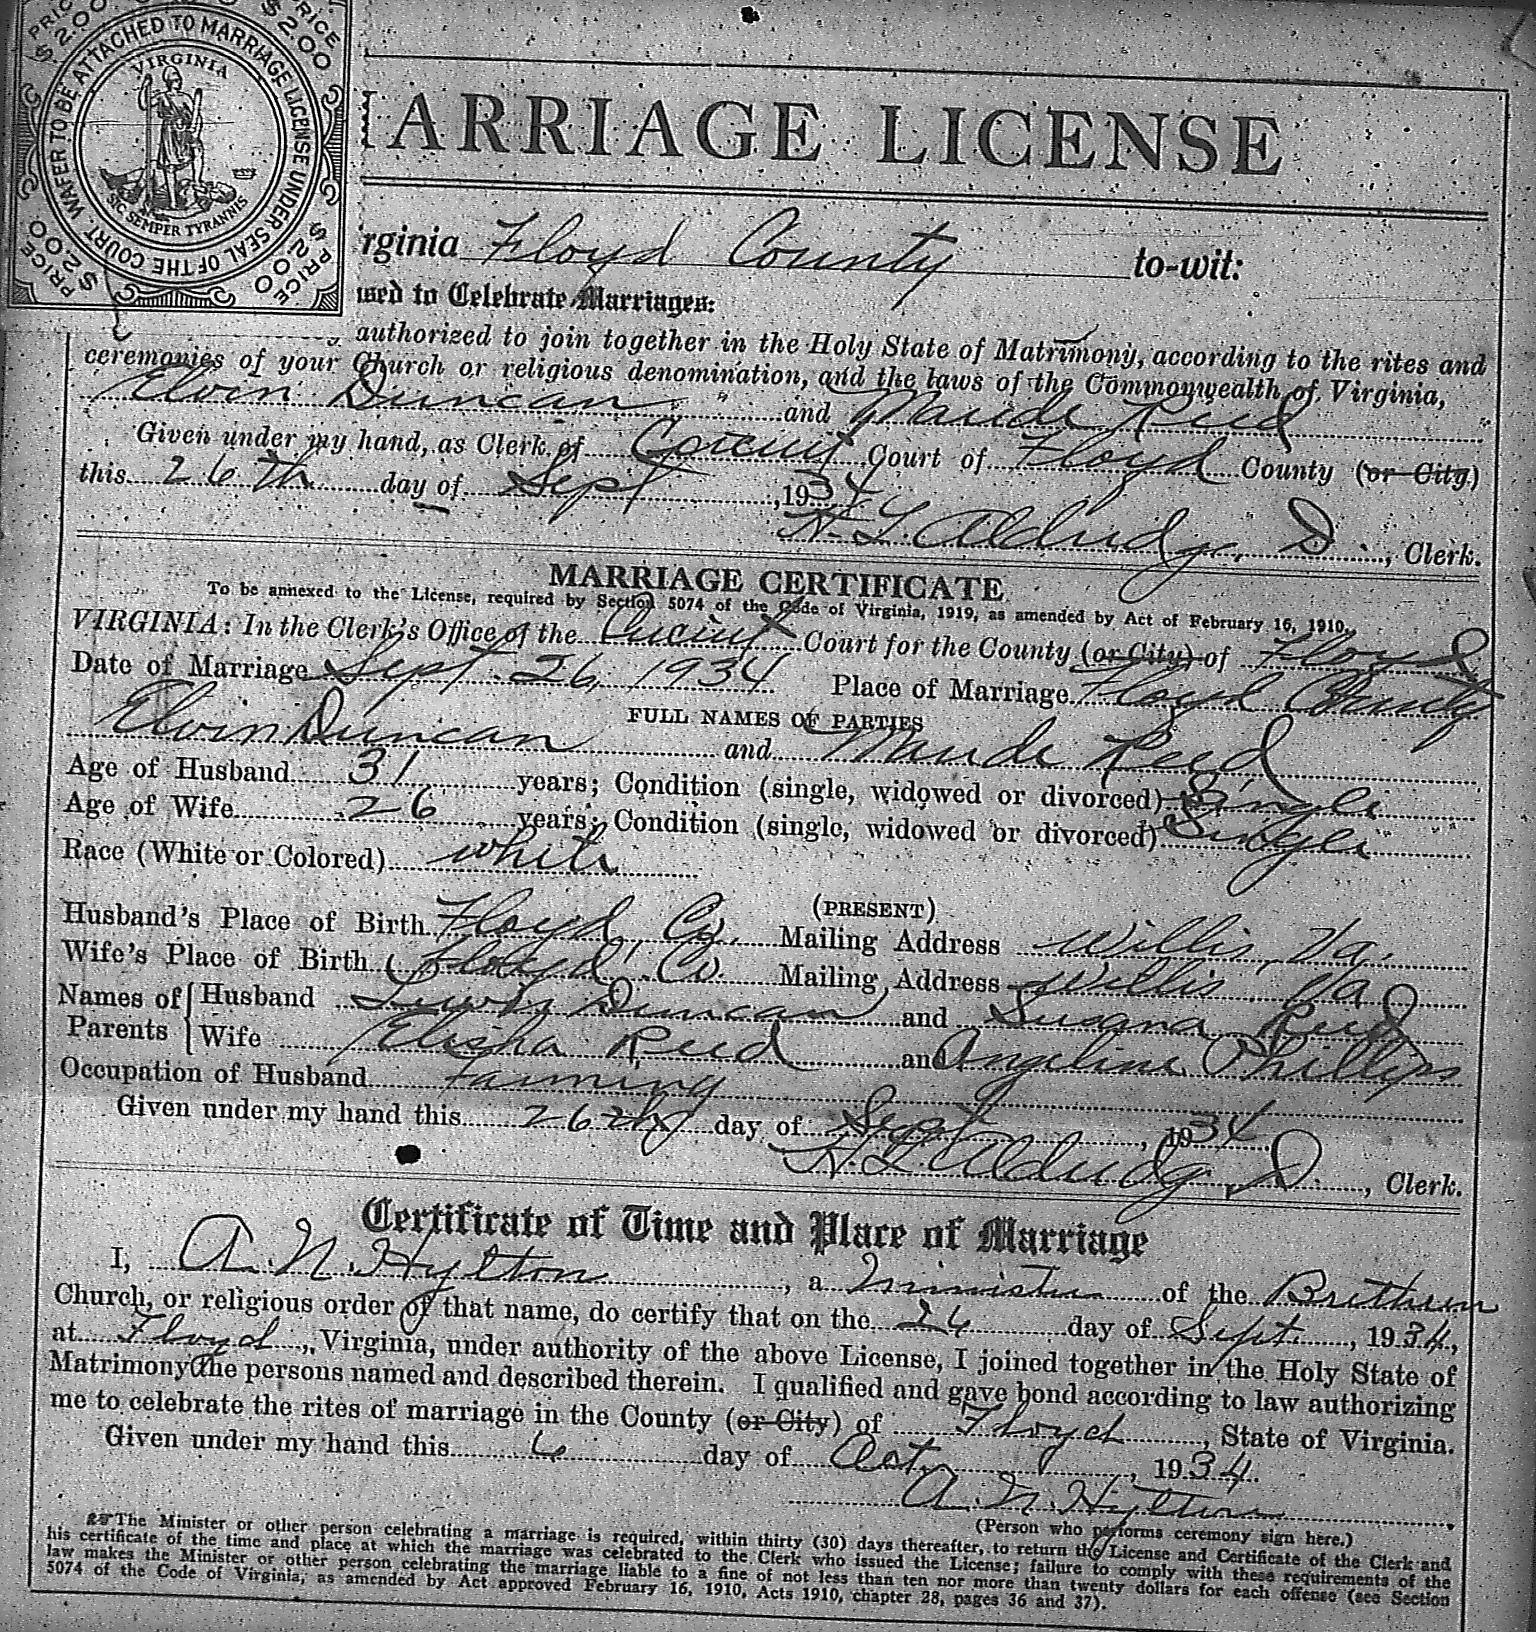 PRICE $2.00
PRICE $2.00
WAFER TO BE ATTACHED TO MARRIAGE LICENSE UNDER SEAL OF THE COURT.
VIRGINIA
SIC SEMPER TYRANNIS
PRICE $2.00
PRICE $2.00
ARRIAGE LICENSE
rginia Floyd County to-wit:
sed to Celebrate Marriages:
authorized to join together in the Holy State of Matrimony, according to the rites and
ceremonies of your Church or religious denomination, and the laws of the Commonwealth of Virginia,
Elvin Duncan and Maude Reed
Given under my hand, as Clerk of Circuit Court of Floyd County (or City)
this 26th day of Sept, 1934
H. L. Aldridge, D, Clerk.
MARRIAGE CERTIFICATE
To be annexed to the License, required by Section 5074 of the Code of Virginia, 1919, as amended by Act of February 16, 1910.
VIRGINIA: In the Clerk's Office of the Circuit Court for the County (or City) of Floyd
Date of Marriage Sept. 26, 1934 Place of Marriage Floyd County
FULL NAMES OF PARTIES
Elvin Duncan and Maude Reed
Age of Husband 31 years; Condition (single, widowed or divorced) Single
Age of Wife 26 years; Condition (single, widowed or divorced) Single
Race (White or Colored) white
(PRESENT)
Husband's Place of Birth Floyd Co. Mailing Address Willis, Va.
Wife's Place of Birth Floyd Co. Mailing Address Willis, Va
Names of Parents
Husband Lewis Duncan and Susana Reed
Wife Elisha Reed and Angeline Phillips
Occupation of Husband Farming
Given under my hand this 26th day of Sept, 1934
H. L. Aldridge, D, Clerk.
Certificate of Time and Place of Marriage
I, A. N. Hylton, a minister of the Brethren
Church, or religious order of that name, do certify that on the 26 day of Sept., 1934,
at Floyd, Virginia, under authority of the above License, I joined together in the Holy State of
Matrimony the persons named and described therein. I qualified and gave bond according to law authorizing
me to celebrate the rites of marriage in the County (or City) of Floyd, State of Virginia.
Given under my hand this 6 day of Oct., 1934.
A. N. Hylton
(Person who performs ceremony sign here.)
The Minister or other person celebrating a marriage is required, within thirty (30) days thereafter, to return the License and Certificate of the Clerk and
his certificate of the time and place at which the marriage was celebrated to the Clerk who issued the License; failure to comply with these requirements of the
law makes the Minister or other person celebrating the marriage liable to a fine of not less than ten nor more than twenty dollars for each offense (see Section
5074 of the Code of Virginia, as amended by Act approved February 16, 1910, Acts 1910, chapter 28, pages 36 and 37).